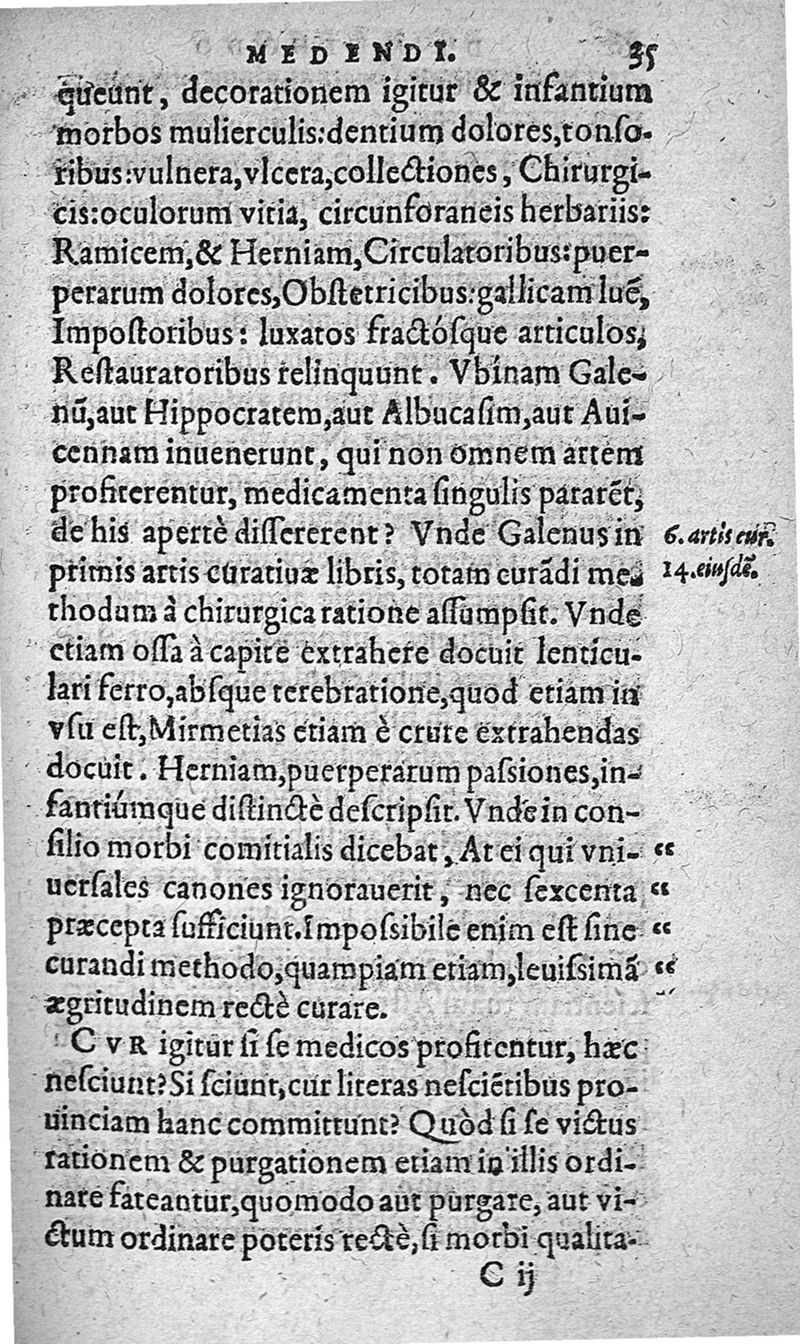 MEDENDI. 35
queunt, decorationem igitur & infantium
morbos mulierculis:dentium dolores,tonſo-
ribus:vulnera,vlcera,collectiones, Chirurgi-
cis:oculorum vitia, circunforaneis herbariis:
Ramicem,& Herniam,Circulatoribus:puer-
perarum dolores,Obſtetricibus:gallicam luẽ,
Impoſtoribus: luxatos fractóſque articulos,
Reſtauratoribus relinquunt. Vbínam Gale-
nũ,aut Hippocratem,aut Albucaſim,aut Aui-
cennam inuenerunt, qui non omnem artem
profiterentur, medicamenta ſingulis pararẽt,
de his apertè diſſererent? Vnde Galenus in
6. artis cur.
primis artis curatiuæ libris, totam curãdi me-
14.eiuſdẽ.
thodum à chirurgica ratione aſſumpſit. Vnde
etiam oſſa à capite extrahere docuit lenticu-
lari ferro,abſque terebratione,quod etiam in
vſu eſt,Mirmetias etiam è crure extrahendas
docuit. Herniam,puerperarum paſsiones,in-
fantiúmque diſtinctè deſcripſit. Vnde in con-
ſilio morbi comitialis dicebat, At ei qui vni- “
uerſales canones ignorauerit, nec ſexcenta “
præcepta ſufficiunt.Impoſsibile enim eſt ſine “
curandi methodo,quampiam etiam,leuiſsimã “
ægritudinem rectè curare.
CVR igitur ſi ſe medicos profitentur, hæc
neſciunt?Si ſciunt,cur literas neſciẽtibus pro-
uinciam hanc committunt? Quòd ſi ſe victus
rationem & purgationem etiam in illis ordi-
nare fateantur,quomodo aut purgare, aut vi-
ctum ordinare poteris rectè,ſi morbi qualita-
C ij